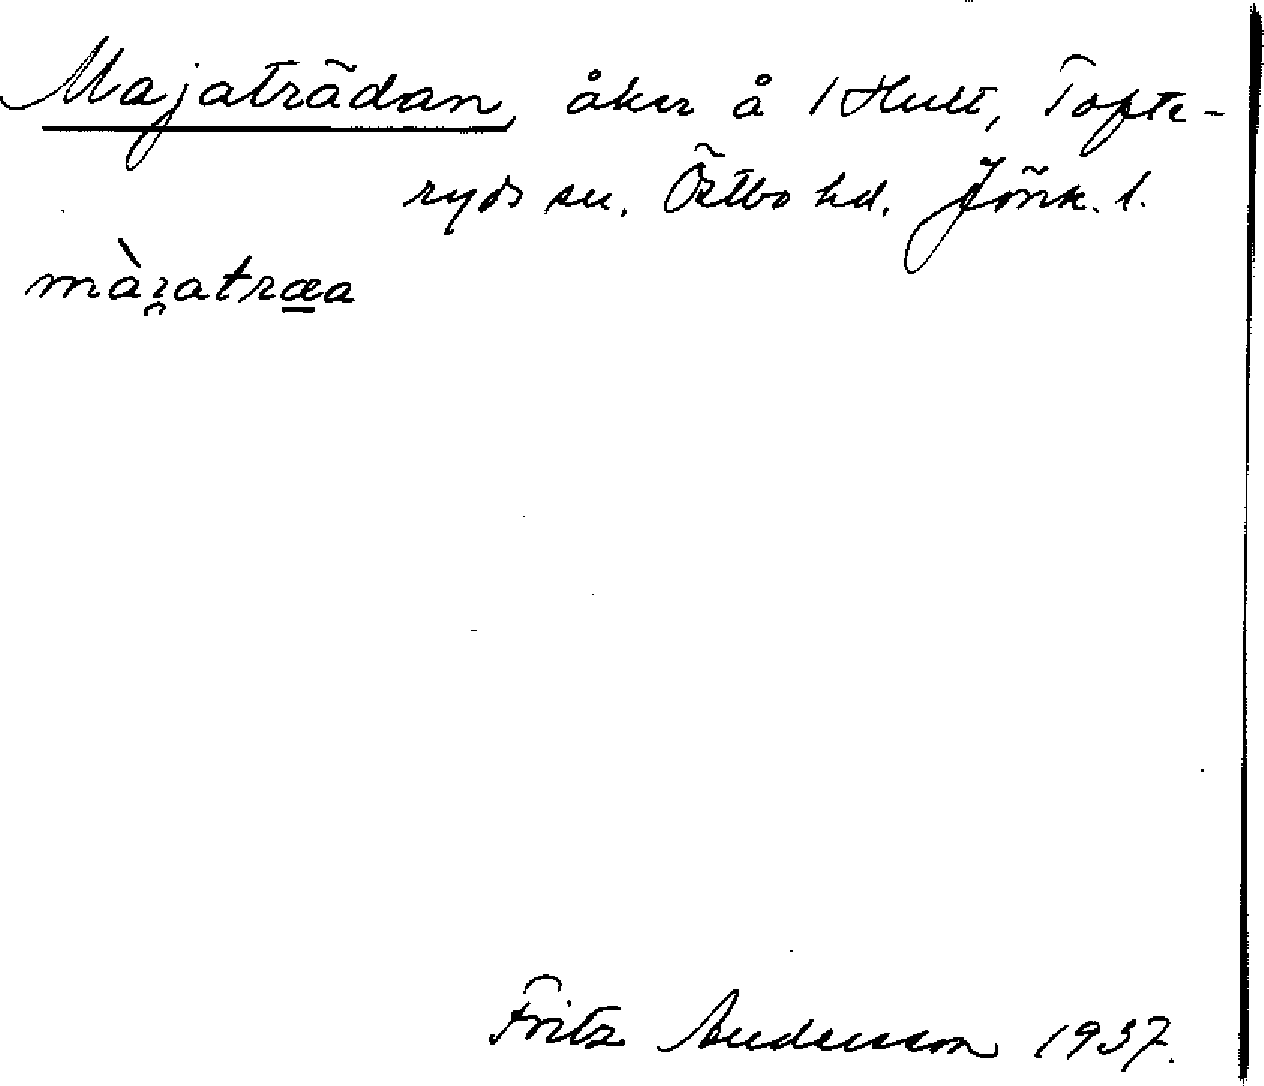 Majaträdan, åker å 1 Hult, Tofte-
ryds sn. Östbo hd. Jönk. l.
màı̯atræa
Fritz Andersson 1937.